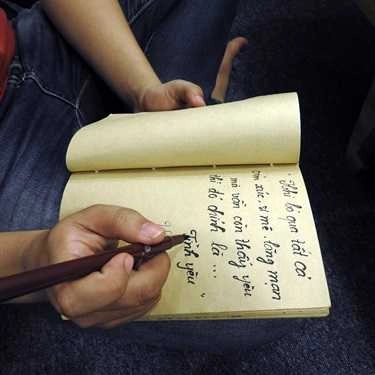 "Khi bỏ qua tất cả
cảm xúc, mê, lãng mạn
mà vẫn còn thấy yêu
thì đó chính là ...
Tình yêu "